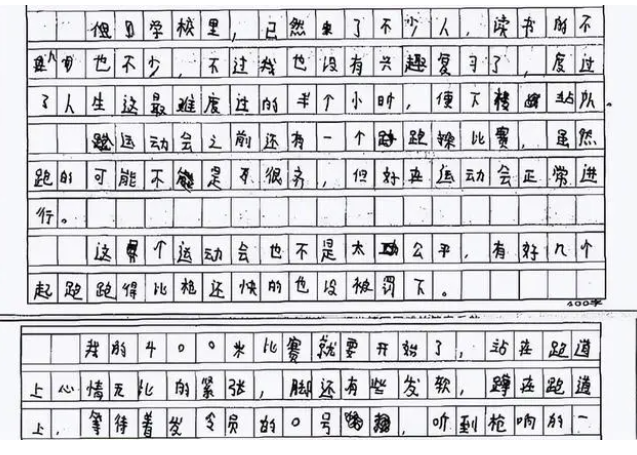 但是学校里，已然来了不少人，读书的不
也不少，不过我也没有兴趣复习了，度过
了人生这最难度过的半个小时，便下楼站队。
运动会之前还有一个跑操比赛，虽然
跑的可能不是很齐，但好在运动会正常进
行。
这个运动会也不是太公平，有好几个
起跑跑得比枪还快的也没被罚下。
400字
我的400米比赛就要开始了，站在跑道
上心情无比的紧张，脚还有些发软，蹲在跑道
上，等待着发令员的口号，听到枪响的一